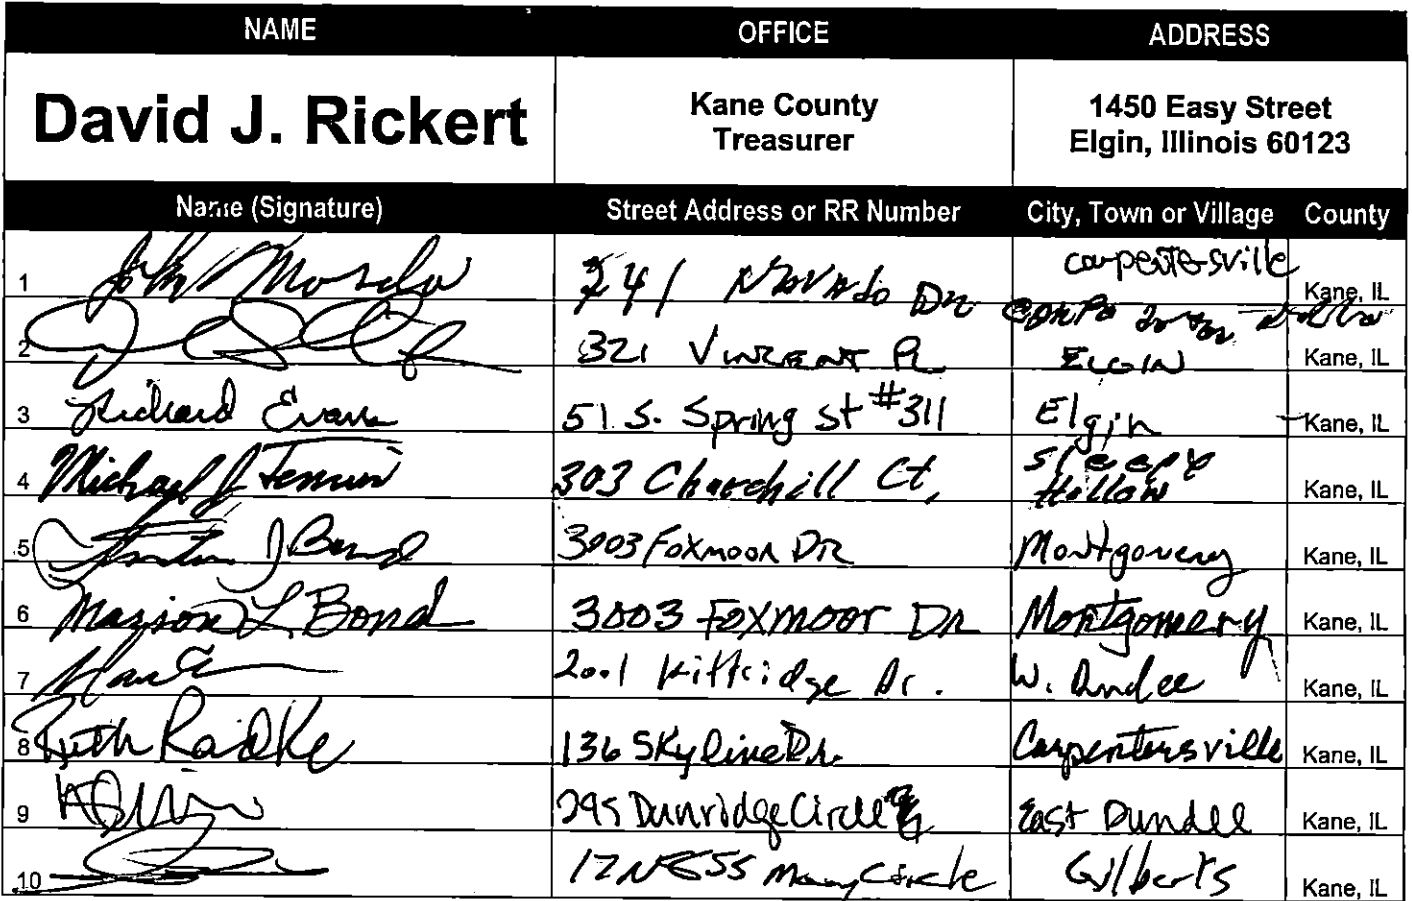 NAME OFFICE ADDRESS
David J. Rickert Kane County Treasurer 1450 Easy Street Elgin, Illinois 60123
Name (Signature) Street Address or RR Number City, Town or Village County
1 John 241 Dr Carpentersville Kane, IL
2 321 Vincent Pl Elgin Kane, IL
3 Richard Evans 51 S. Spring St #311 Elgin Kane, IL
4 Michael J 303 Churchill Ct, Sleepy Hollow Kane, IL
5 J Bond 3003 Foxmoor Dr Montgomery Kane, IL
6 Marion L. Bond 3003 Foxmoor Dr Montgomery Kane, IL
7 2001 Kittridge Dr. W. Dundee Kane, IL
8 Ruth Radke 136 Skyline Dr. Carpentersville Kane, IL
9 295 Dunridge Circle East Dundee Kane, IL
10 Circle Gilberts Kane, IL